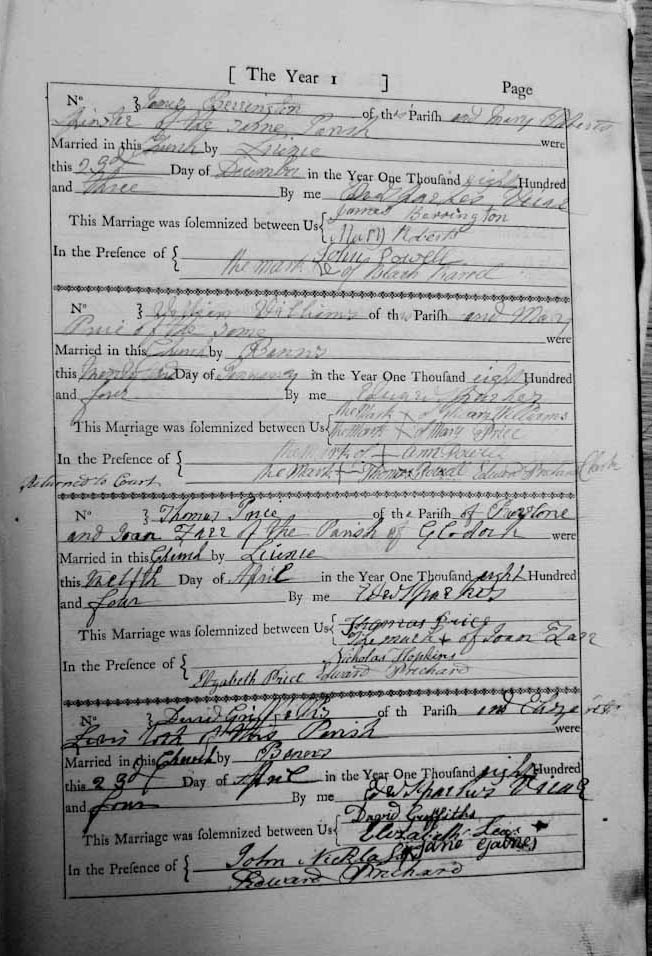 [ The Year 1 ] Page
No } James Berrington of this Parish and Mary Roberts
Spinster of the same Parish were
Married in this Church by Licence
this 29th Day of December in the Year One Thousand eight Hundred
and three By me Edwd Parkes Vicar
This Marriage was solemnized between Us { James Berrington
Mary Roberts
In the Presence of { John Powell
the mark of
No } William Williams of this Parish and Mary
Price of the same were
Married in this Church by Banns
this Day of January in the Year One Thousand eight Hundred
and four By me Parkes
This Marriage was solemnized between Us { the Mark + of Williams
the Mark + of Mary Price
In the Presence of { the mark of + Ann Powell
the Mark + Thomas Edward Prichard Clerk
Returned to Court
No } Thomas Price of the Parish of
and Joan Farr of the Parish of Clodock were
Married in this Church by Licence
this twelfth Day of April in the Year One Thousand eight Hundred
and four By me Edwd Parkes
This Marriage was solemnized between Us { Thomas Price
The mark + of Joan Farr
In the Presence of { Nicholas Hopkins
Elizabeth Price Edward Prichard
No } David Griffiths of th Parish and Elizabeth
Lewis both of this Parish were
Married in this Church by Banns
this 29 Day of April in the Year One Thousand eight Hundred
and four By me Edwd Parkes Vicar
This Marriage was solemnized between Us { David Griffiths
Elizabeth Lewis +
In the Presence of { John Nicklas Jane
Edward Prichard